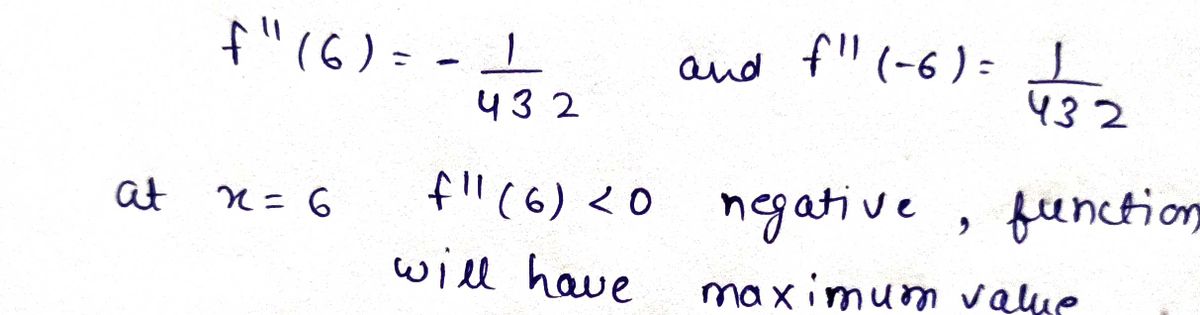 f''(6) = - 1/432 and f''(-6) = 1/432
at x = 6 f''(6) < 0 negative, function
will have maximum value